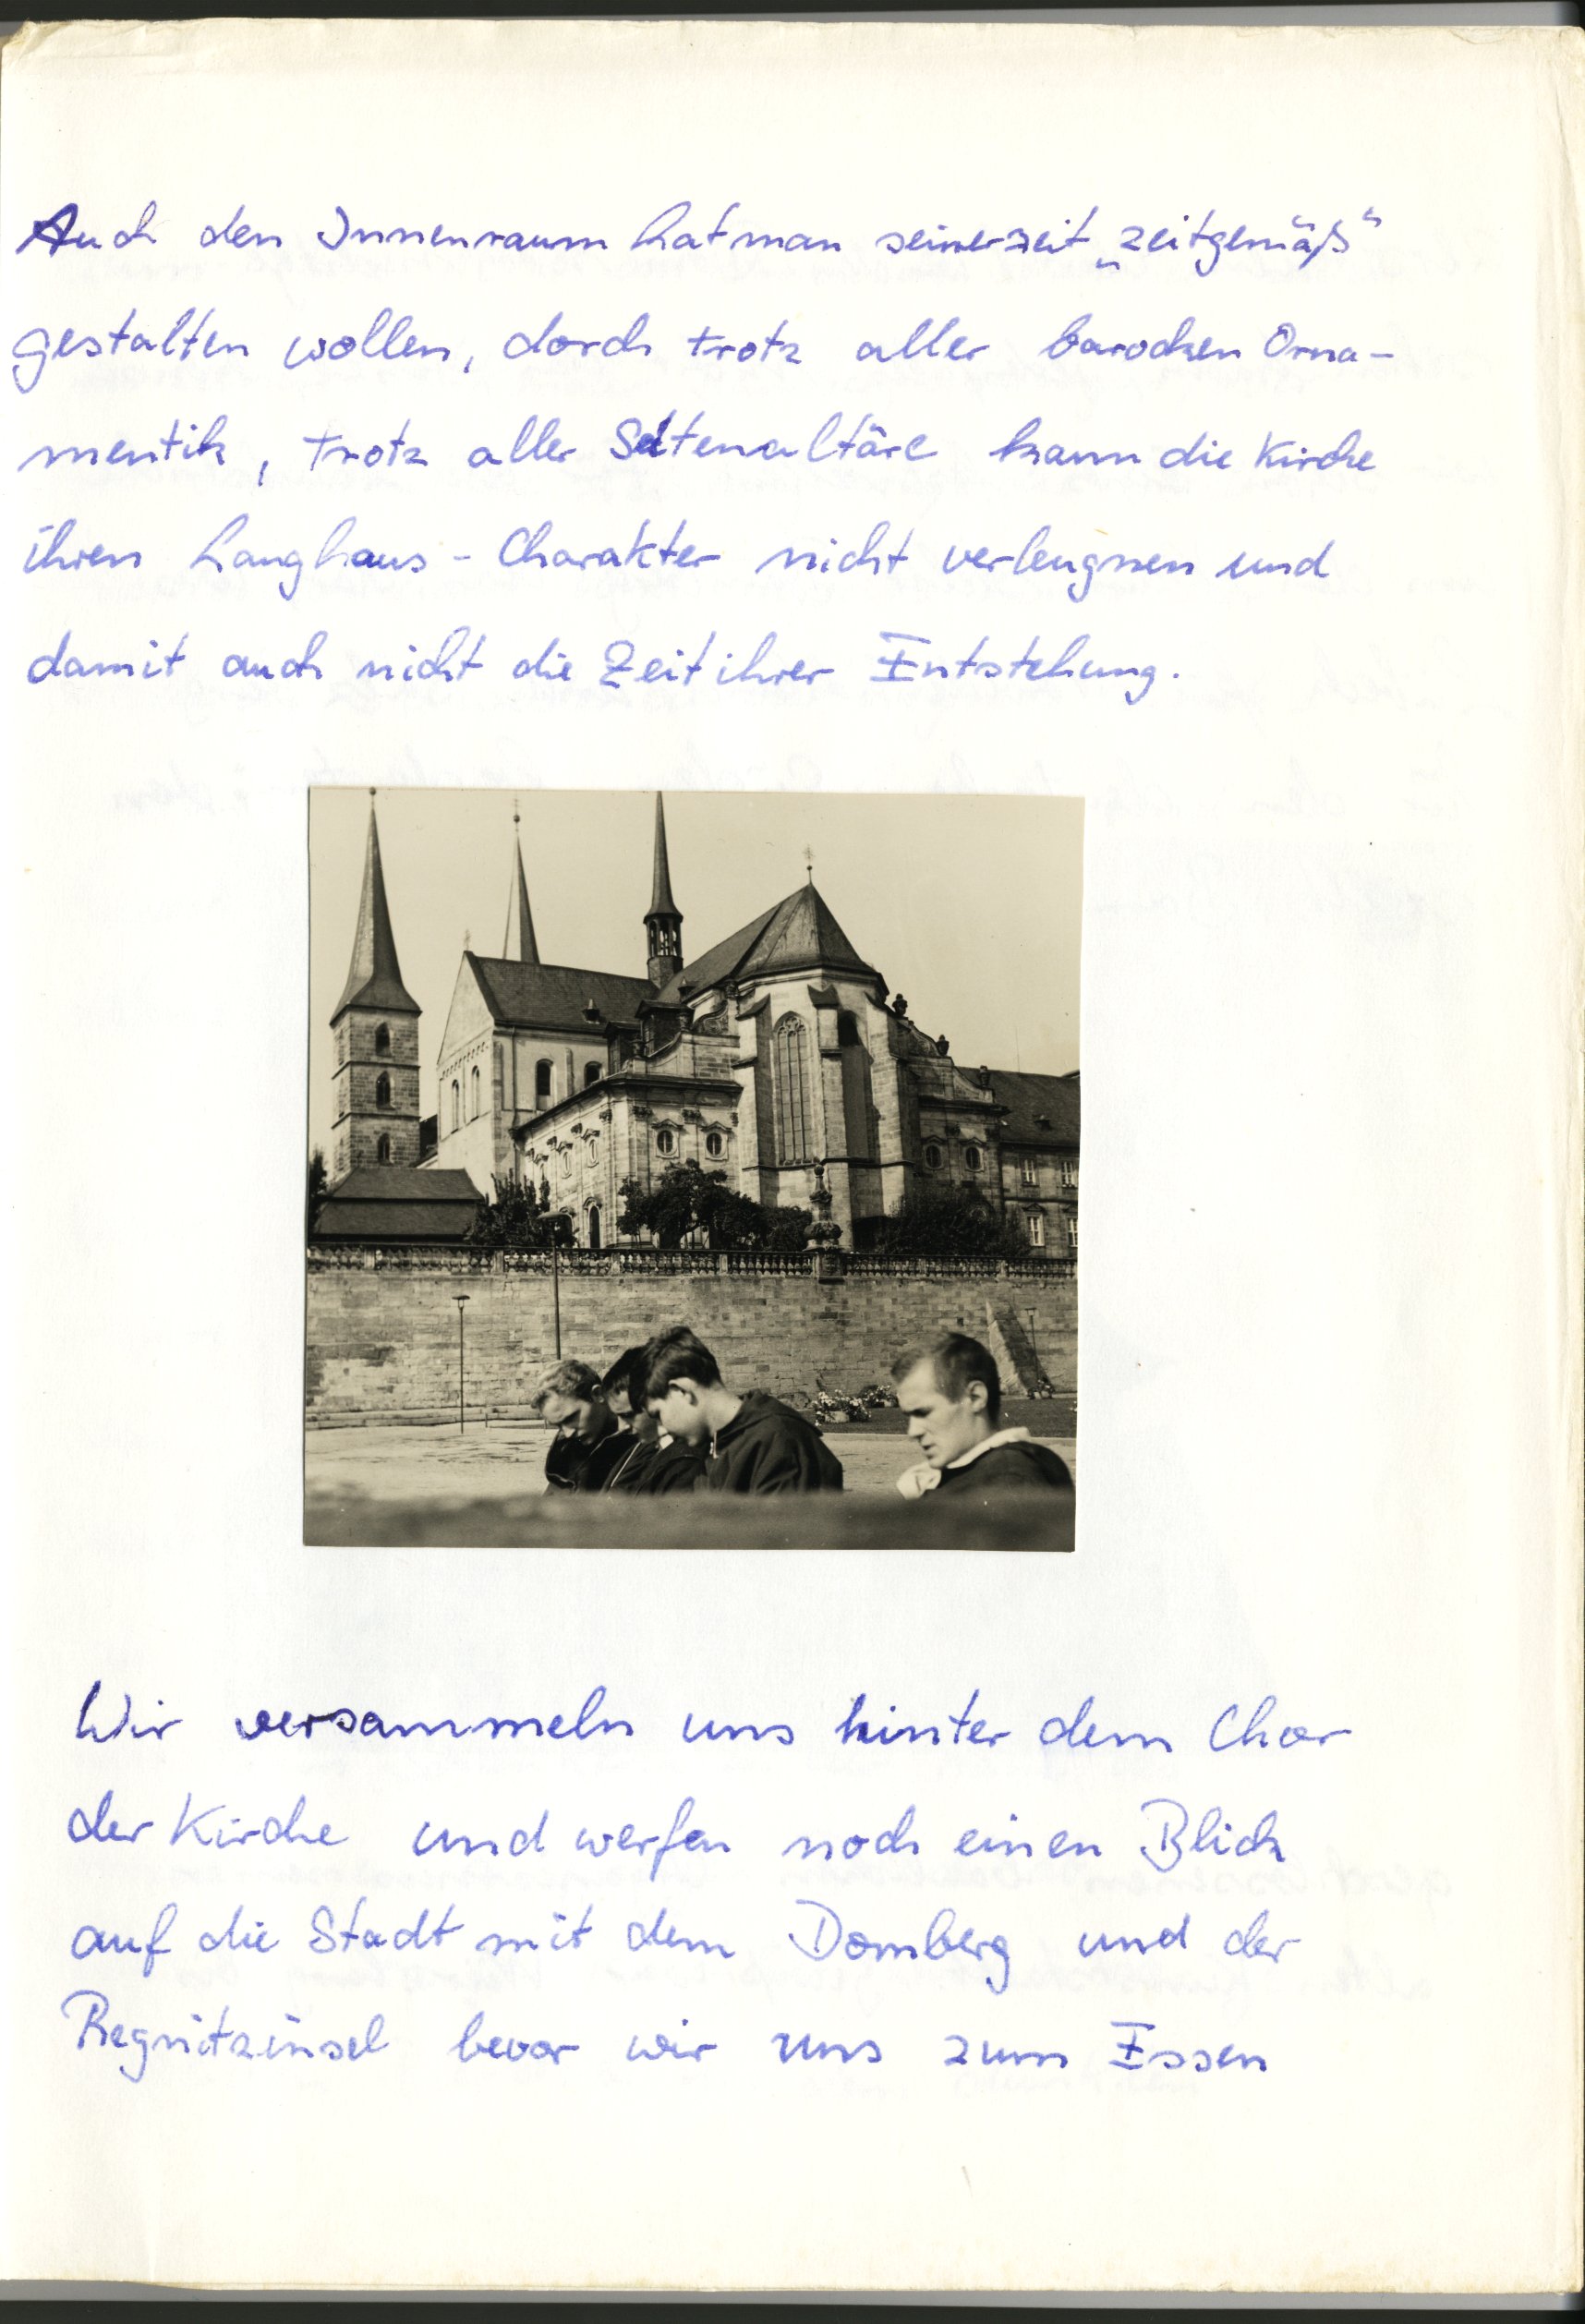 Auch den Innenraum hat man seinerzeit „zeitgemäß“
gestalten wollen, doch trotz aller barocken Orna-
mentik, trotz aller Seitenaltäre kann die Kirche
ihren Langhaus-Charakter nicht verleugnen und
damit auch nicht die Zeit ihrer Entstehung.
Wir versammeln uns hinter dem Chor
der Kirche und werfen noch einen Blick
auf die Stadt mit dem Domberg und der
Regnitzinsel bevor wir uns zum Essen